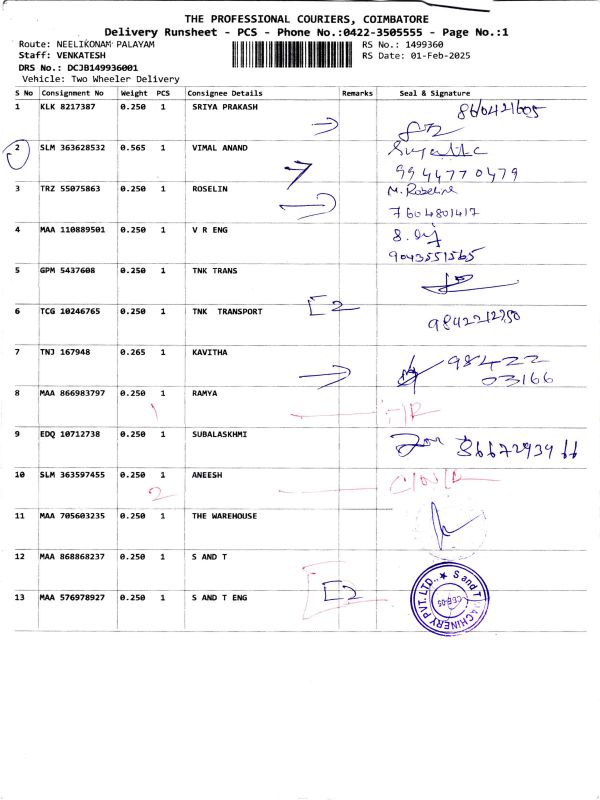 THE PROFESSIONAL COURIERS, COIMBATORE
Delivery Runsheet - PCS - Phone No.:0422-3505555 - Page No.:1
Route: NEELIKONAM PALAYAM RS No.: 1499360
Staff: VENKATESH RS Date: 01-Feb-2025
DRS No.: DCJB149936001
Vehicle: Two Wheeler Delivery
S No Consignment No Weight PCS Consignee Details Remarks Seal & Signature
1 KLK 8217387 0.250 1 SRIYA PRAKASH 860421605
2 SLM 363628532 0.565 1 VIMAL ANAND
9944770479
3 TRZ 55075863 0.250 1 ROSELIN M. Roseline
7604801417
4 MAA 110889501 0.250 1 V R ENG
9043551565
5 GPM 5437608 0.250 1 TNK TRANS
6 TCG 10246765 0.250 1 TNK TRANSPORT [2
9842212750
7 TNJ 167948 0.265 1 KAVITHA 98422
03166
8 MAA 866983797 0.250 1 RAMYA
1
9 EDQ 10712738 0.250 1 SUBALASKHMI
10 SLM 363597455 0.250 1 ANEESH
2
11 MAA 705603235 0.250 1 THE WAREHOUSE
12 MAA 868868237 0.250 1 S AND T
13 MAA 576978927 0.250 1 S AND T ENG [2
S and T MACHINERY PVT. LTD.,